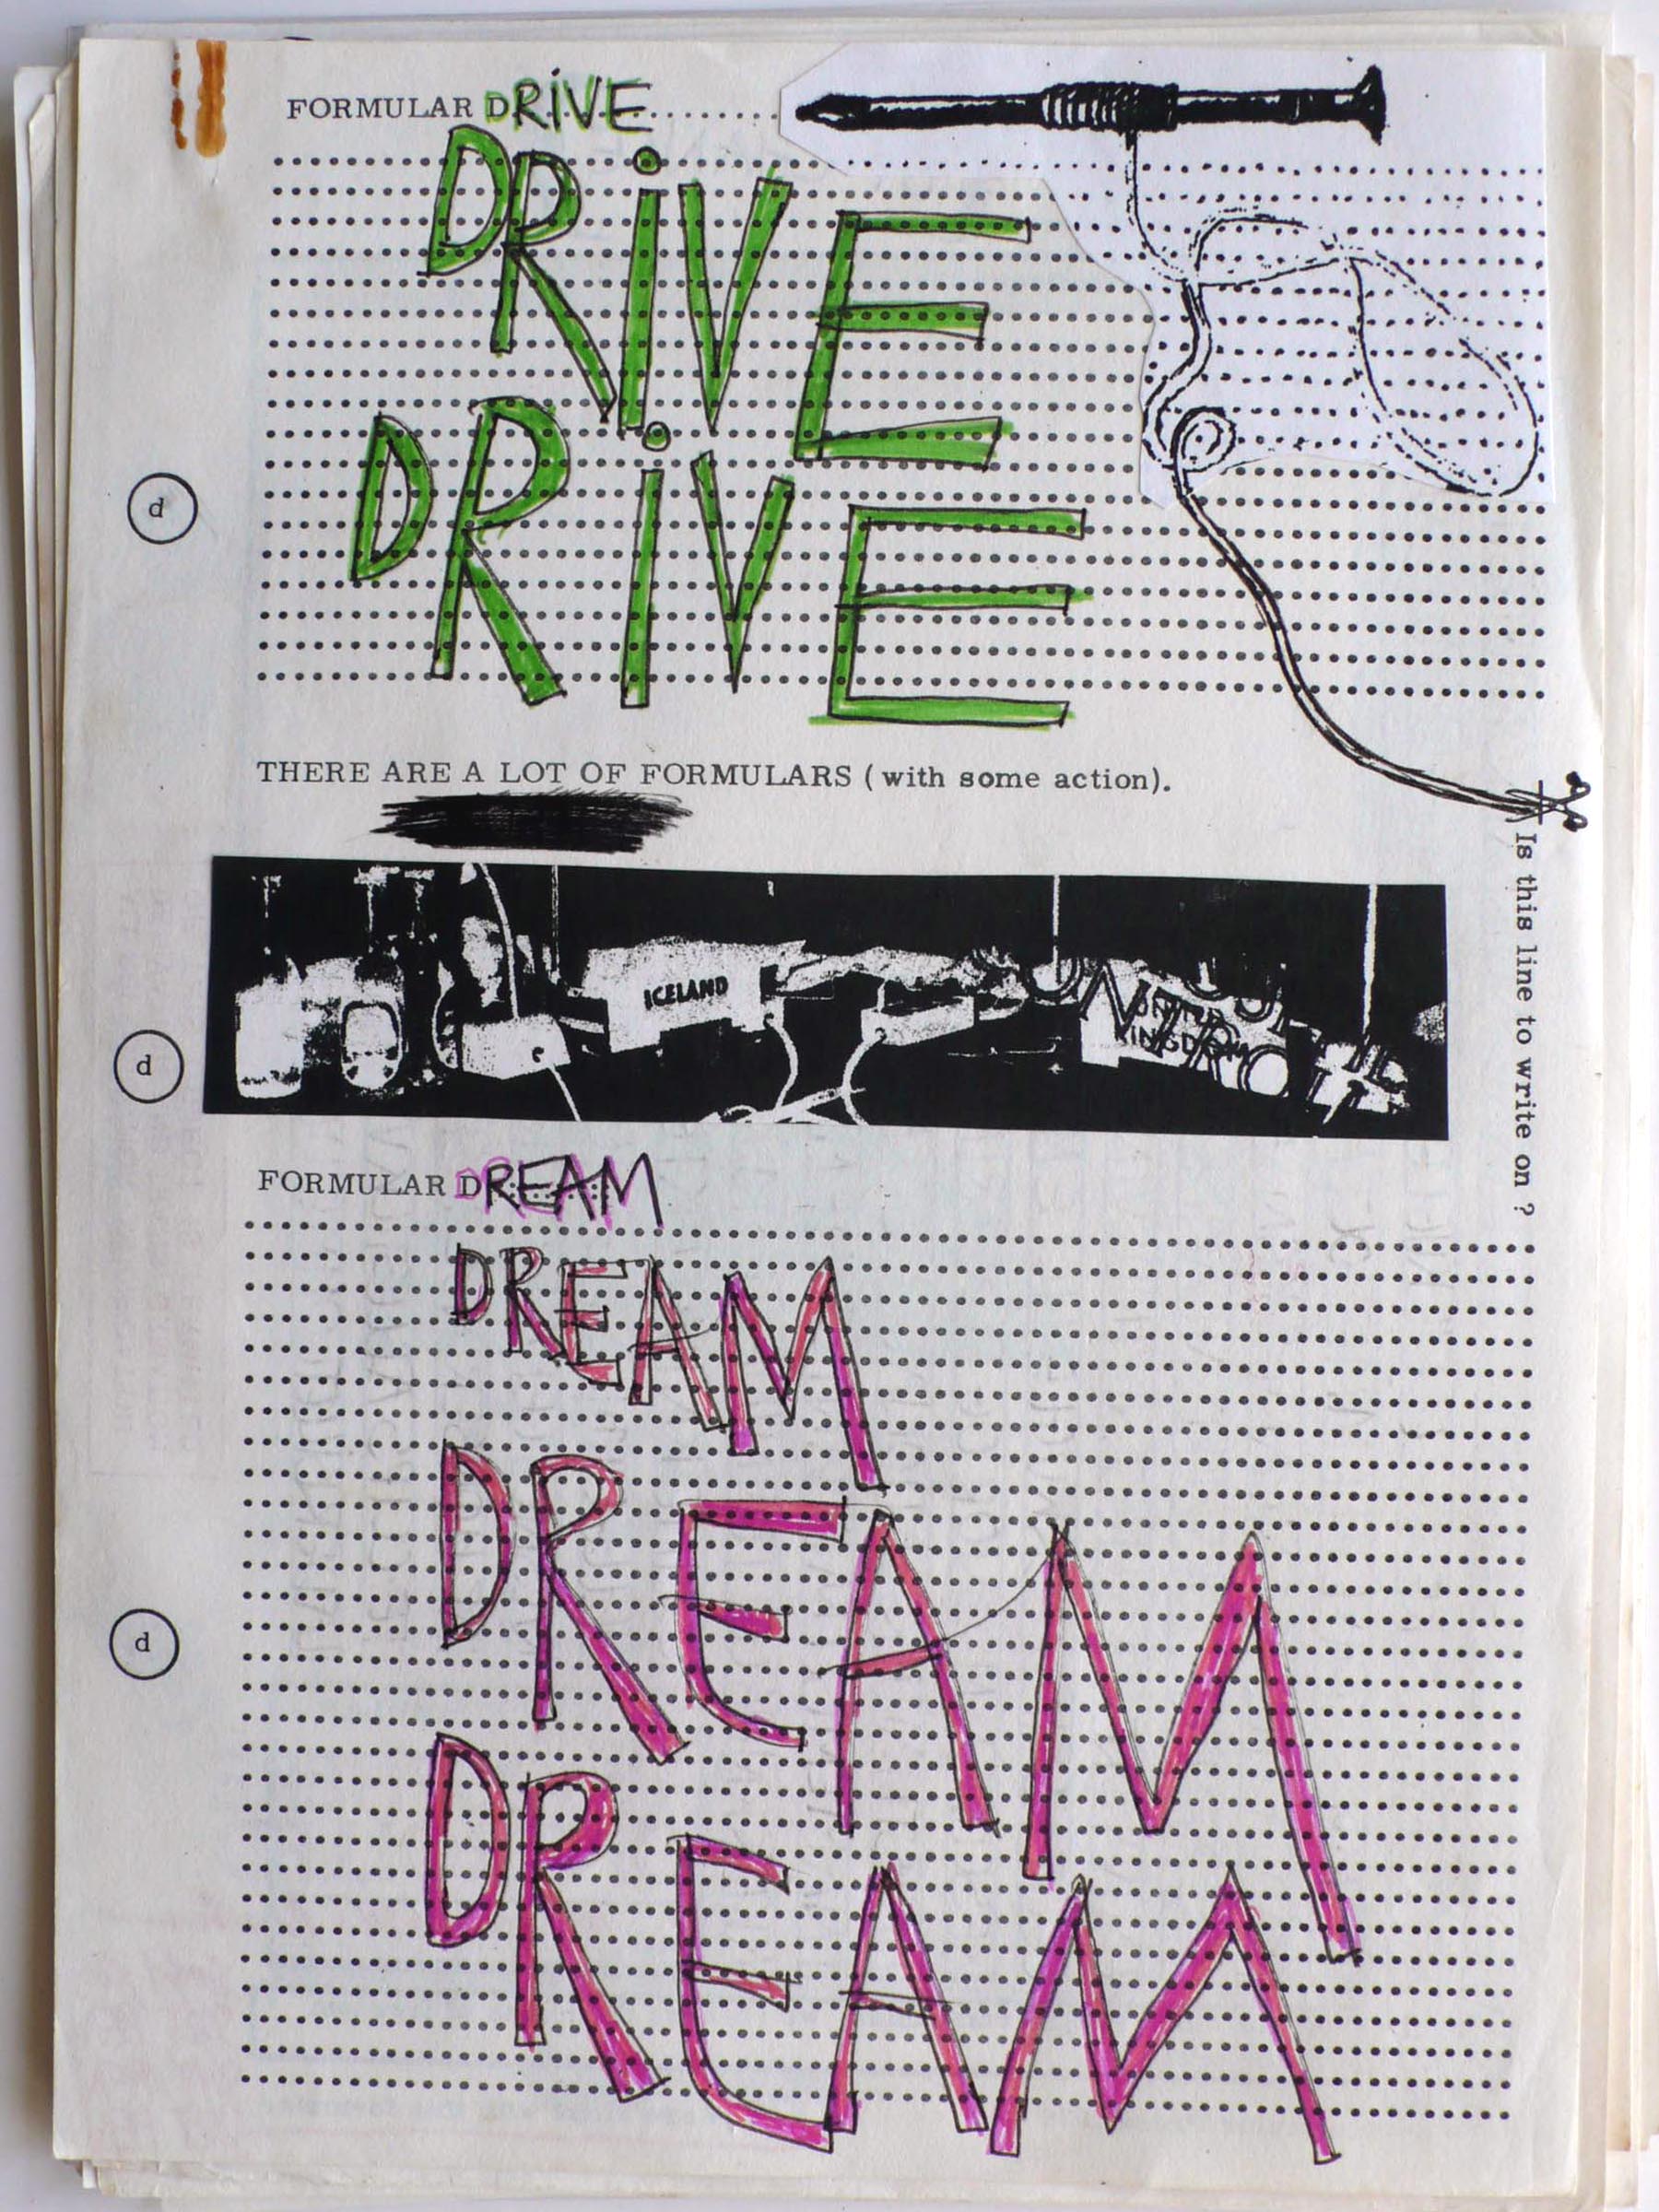 FORMULAR DRiVE
DRiVE
DRiVE
d
THERE ARE A LOT OF FORMULARS (with some action).
Is this line to write on ?
ICELAND
UNITED
KINGDOM
d
FORMULAR DREAM
DREAM
DREAM
d
DREAM